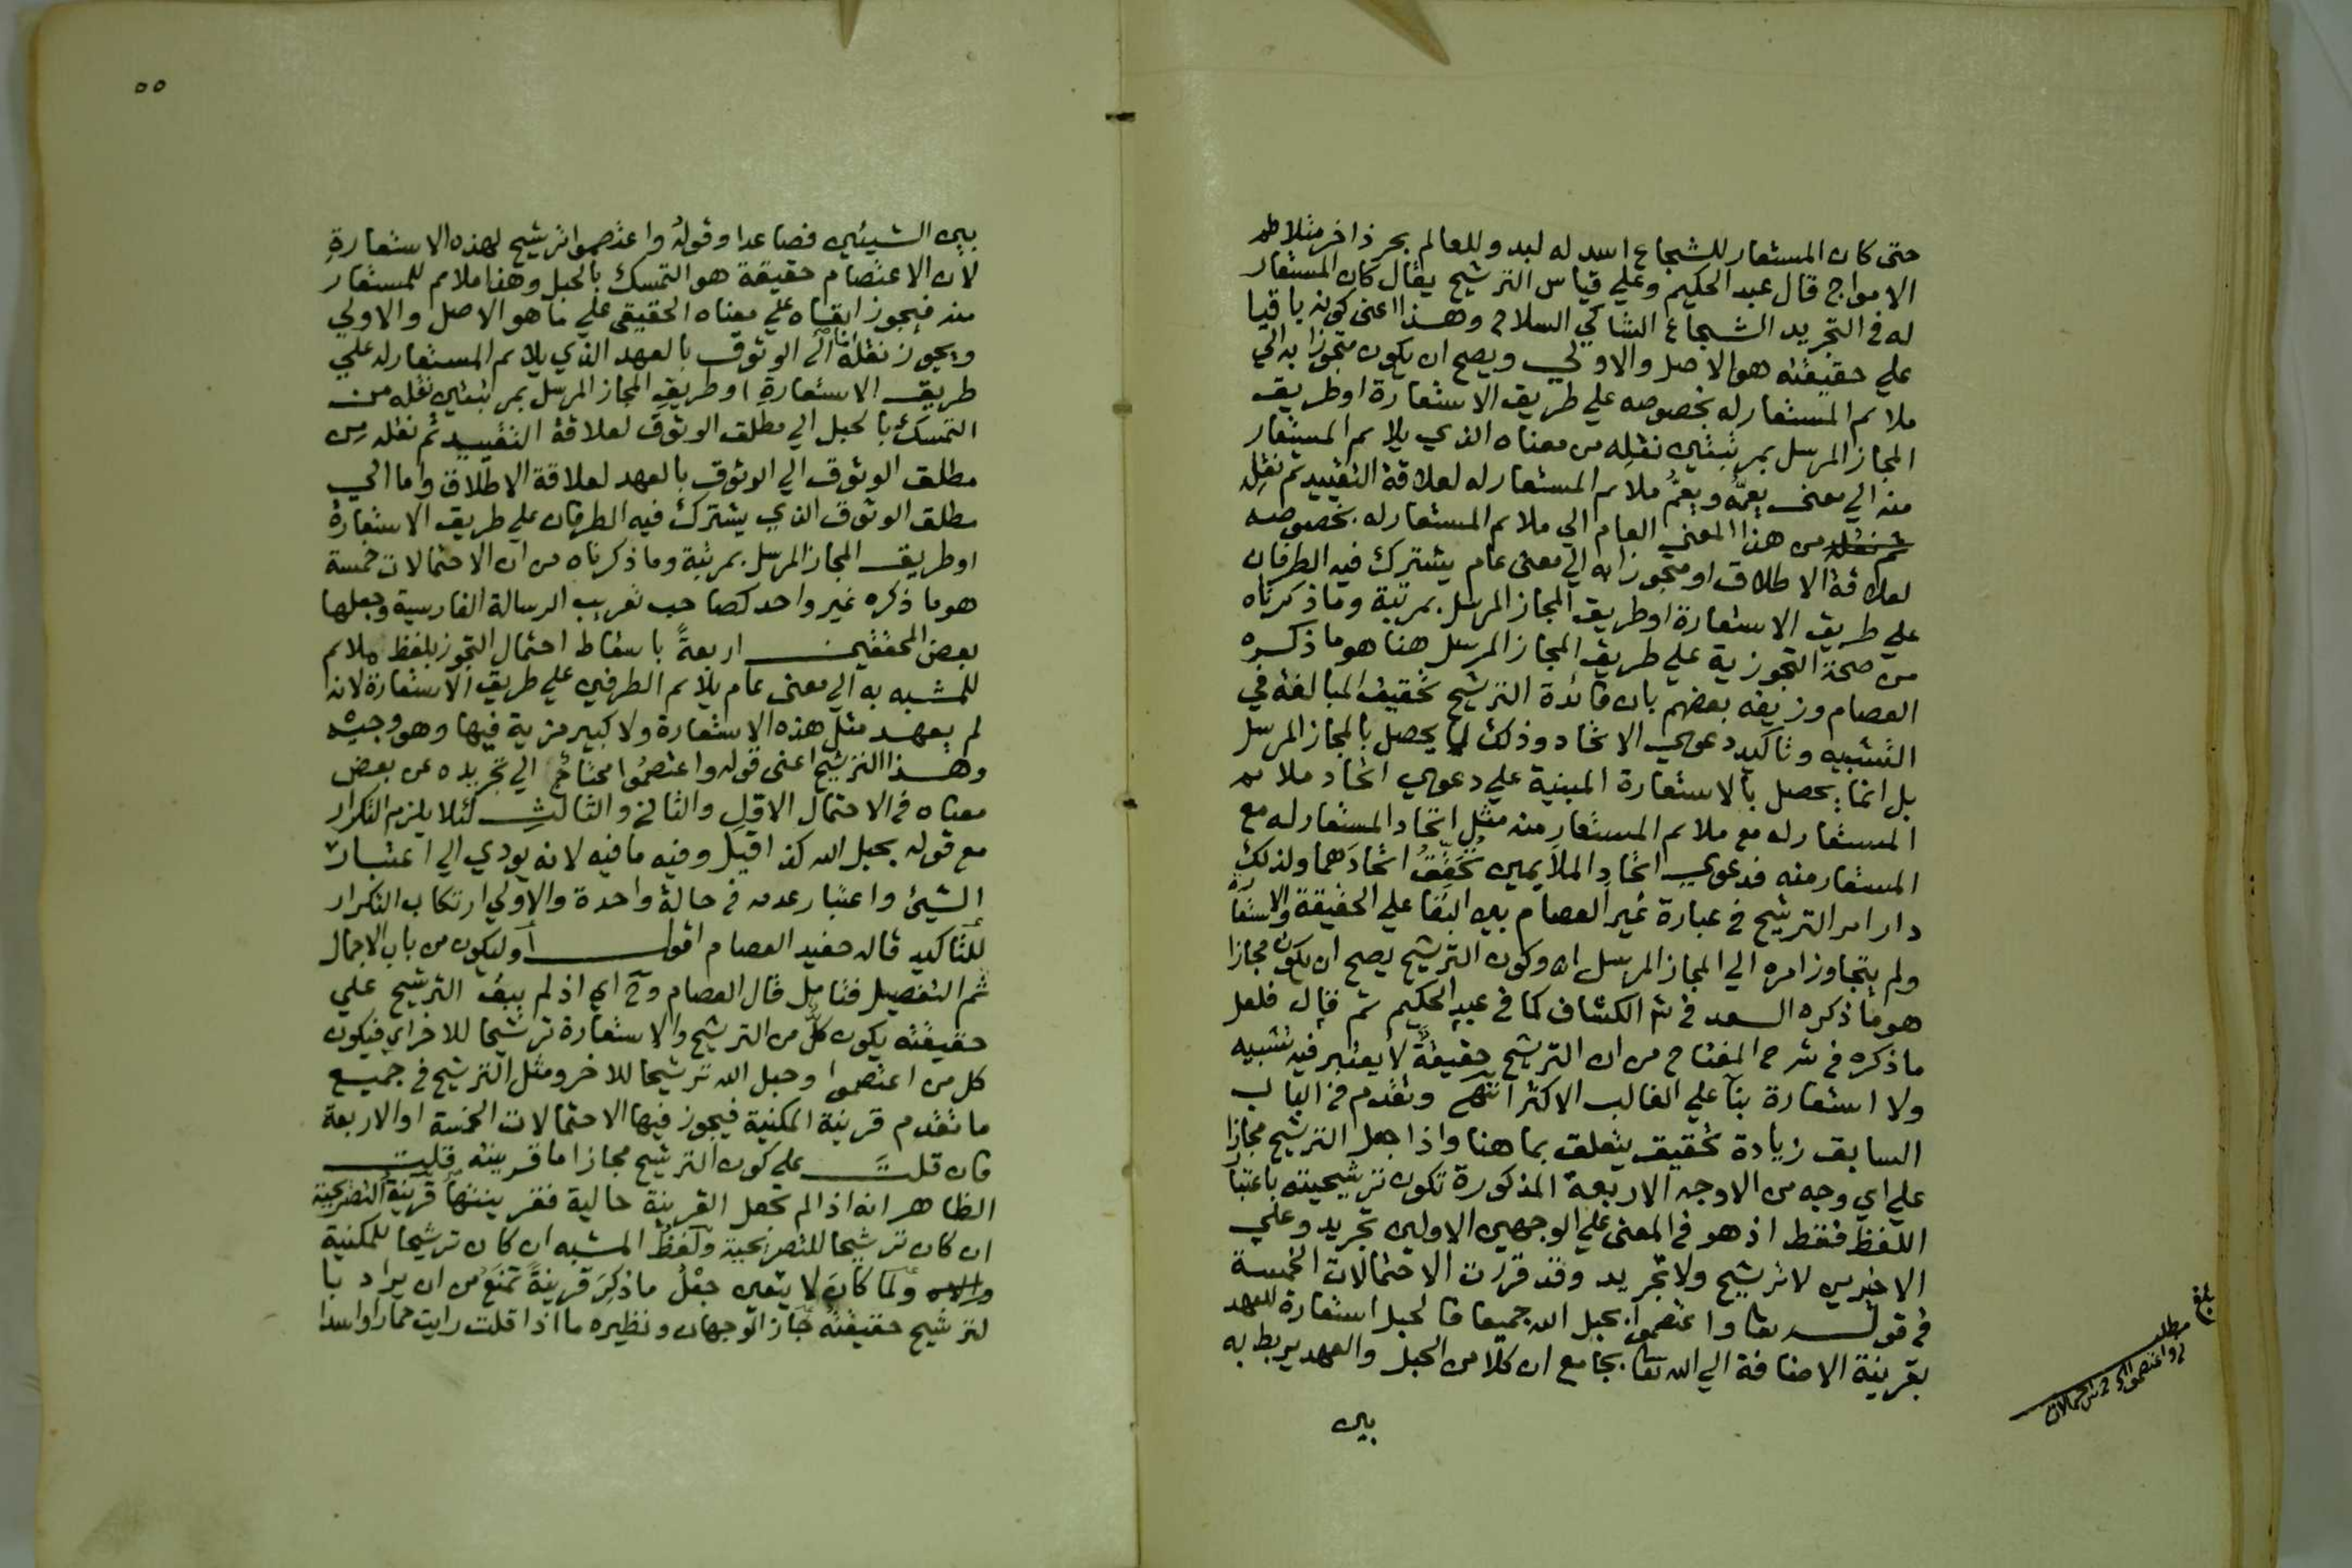 حتى كان المستعار للشجاع اسد له لبد وللعالم بحر ذاخر مثلا طم
الامواج قال عبد الحكيم وعلي قياس الترشيح يقال كان المستعار
له في التجريد الشجاع الشاكي السلاح وهذا اعنى كونه باقيا
علي حقيقته هو الاصل والاولي ويصح ان يكون متجوزا به الي
ملائم المستعار له بخصوصه علي طريق الاستعارة او طريق
المجاز المرسل بمرتبتين نقله من معناه الذي يلائم المستعار
منه الي معنى يعمه ويعم ملائم المستعار له لعلاقة التقييد ثم نقله
من هذا المعنى العام الي ملائم المستعار له بخصوصه
لعلاقة الاطلاق او متجوزا به الي معنى عام يشترك فيه الطرفان
علي طريق الاستعارة او طريق المجاز المرسل بمرتبة وما ذكرناه
من صحة التجوزية علي طريق المجاز المرسل هنا هو ما ذكره
العصام وزيفه بعضهم بان فائدة الترشيح تحقيق المبالغة في
التشبيه وتاكيد دعوي الاتحاد وذلك لا يحصل بالمجاز المرسل
بل انما يحصل بالاستعارة المبنية علي دعوي اتحاد ملائم
المستعار له مع ملائم المستعار منه مثل اتحاد المستعار له مع
المستعار منه فدعوي اتحاد الملايمين تحقق اتحادهما ولذلك
دار امر الترشيح في عبارة غير العصام بين البقا علي الحقيقة والاستعارة
ولم يتجاوز امره الي المجاز المرسل اه وكون الترشيح يصح ان يكون مجازا
هو ما ذكره السعد في شرح الكشاف كما في عبد الحكيم ثم قال فلعل
ما ذكره في شرح المفتاح من ان الترشيح حقيقة لا يعتبر فيه تشبيه
ولا استعارة بنآ علي الغالب الاكثر انتهي وتقدم في الباب
السابق زيادة تحقيق يتعلق بما هنا واذا جعل الترشيح مجازا
علي اي وجه من الاوجه الاربعة المذكورة تكون ترشيحيته باعتبا
اللفظ فقط اذ هو في المعنى علي الوجهين الاولين تجريد وعلي
الاخيرين لا ترشيح ولا تجريد وقد قررت الاحتمالات الخمسة
في قوله تعا واعتصموا بحبل الله جميعا فالحبل استعارة للعهد
بقرينة الاضافة الي الله تعا بجامع ان كلا من الحبل والعهد يربط به
بين
بلغ
مطلب
٥٥
بين الشيئين فصاعدا وقوله واعتصموا ترشيح لهذه الاستعارة
لان الاعتصام حقيقة هو التمسك بالحبل وهذا ملائم للمستعار
منه فيجوز ابقاه علي معناه الحقيقي علي ما هو الاصل والاولي
ويجوز نقله الي الوثوق بالعهد الذي يلائم المستعار له علي
طريق الاستعارة او طريق المجاز المرسل بمرتبتين نقله من
التمسك بالحبل الي مطلق الوثوق لعلاقة التقييد ثم نقله من
مطلق الوثوق الي الوثوق بالعهد لعلاقة الاطلاق واما الي
مطلق الوثوق الذي يشترك فيه الطرفان علي طريق الاستعارة
او طريق المجاز المرسل بمرتبة وما ذكرناه من ان الاحتمالات خمسة
هو ما ذكره غير واحد كصاحب تعريب الرسالة الفارسية وجعلها
بعض المحققين اربعة باسقاط احتمال التجوز بلفظ ملائم
للمشبه به الي معنى عام يلائم الطرفين علي طريق الاستعارة لانه
لم يعهد مثل هذه الاستعارة ولا كبير مزية فيها وهو وجيه
وهذا الترشيح اعنى قوله واعتصموا محتاج الي تجريده عن بعض
معناه في الاحتمال الاول والثاني والثالث لئلا يلزم التكرار
مع قوله بحبل الله كذا قيل وفيه ما فيه لانه يودي الي اعتبار
الشيئ واعتبار عدمه في حالة واحدة والاولي ارتكاب التكرار
للتاكيد قاله حفيد العصام اقول او ليكون من باب الاجمال
ثم التفصيل فتامل قال العصام وح اي اذ لم يبق الترشيح علي
حقيقته يكون كل من الترشيح والاستعارة ترشيحا للاخر اي فيكون
كل من اعتصموا وحبل الله ترشيحا للاخر ومثل الترشيح في جميع
ما تقدم قرينة المكنية فيجوز فيها الاحتمالات الخمسة او الاربعة
فان قلت علي كون الترشيح مجازا ما قرينته قلت
الظاهر انه اذا لم تجعل القرينة حالية فقرينتها قرينة التصريحية
ان كان ترشيحا للتصريحية ولفظ المشبه ان كان ترشيحا للمكنية
ولما كان لا يتعين جعل ما ذكر قرينة تمنع من ان يراد با
لترشيح حقيقته جاز الوجهان ونظيره ما اذا قلت رايت حمارا واسدا